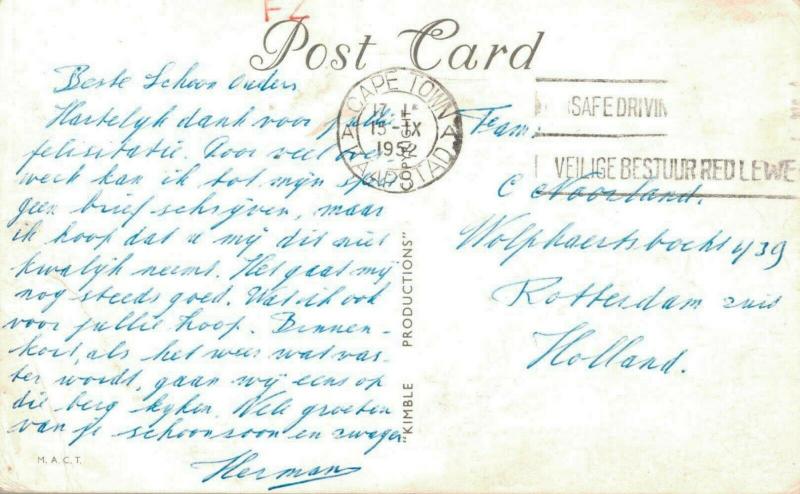 FZ
Post Card
CAPE TOWN
15-IX
1952
KAAPSTAD
SAFE DRIVIN
VEILIGE BESTUUR RED LEWE
Beste Schoon Ouders
Hartelijk dank voor jullie
felisitatie. Door veel
werk kan ik tot mijn
geen brief schrijven, maar
ik hoop dat u mij dit niet
kwalijk neemt. Het gaat mij
nog steeds goed. Wat ik ook
voor jullie hoop. Binnen-
kort, als het weer wat vas-
ter wordt, gaan wij eens op
die berg kijken. Vele groeten
van je schoonzoon en zwager
Herman
M.A.C.T.
"KIMBLE PRODUCTIONS"
COPYR
Fam:
C Noorland.
Wolphaertsbocht 439
Rotterdam zuid
Holland.